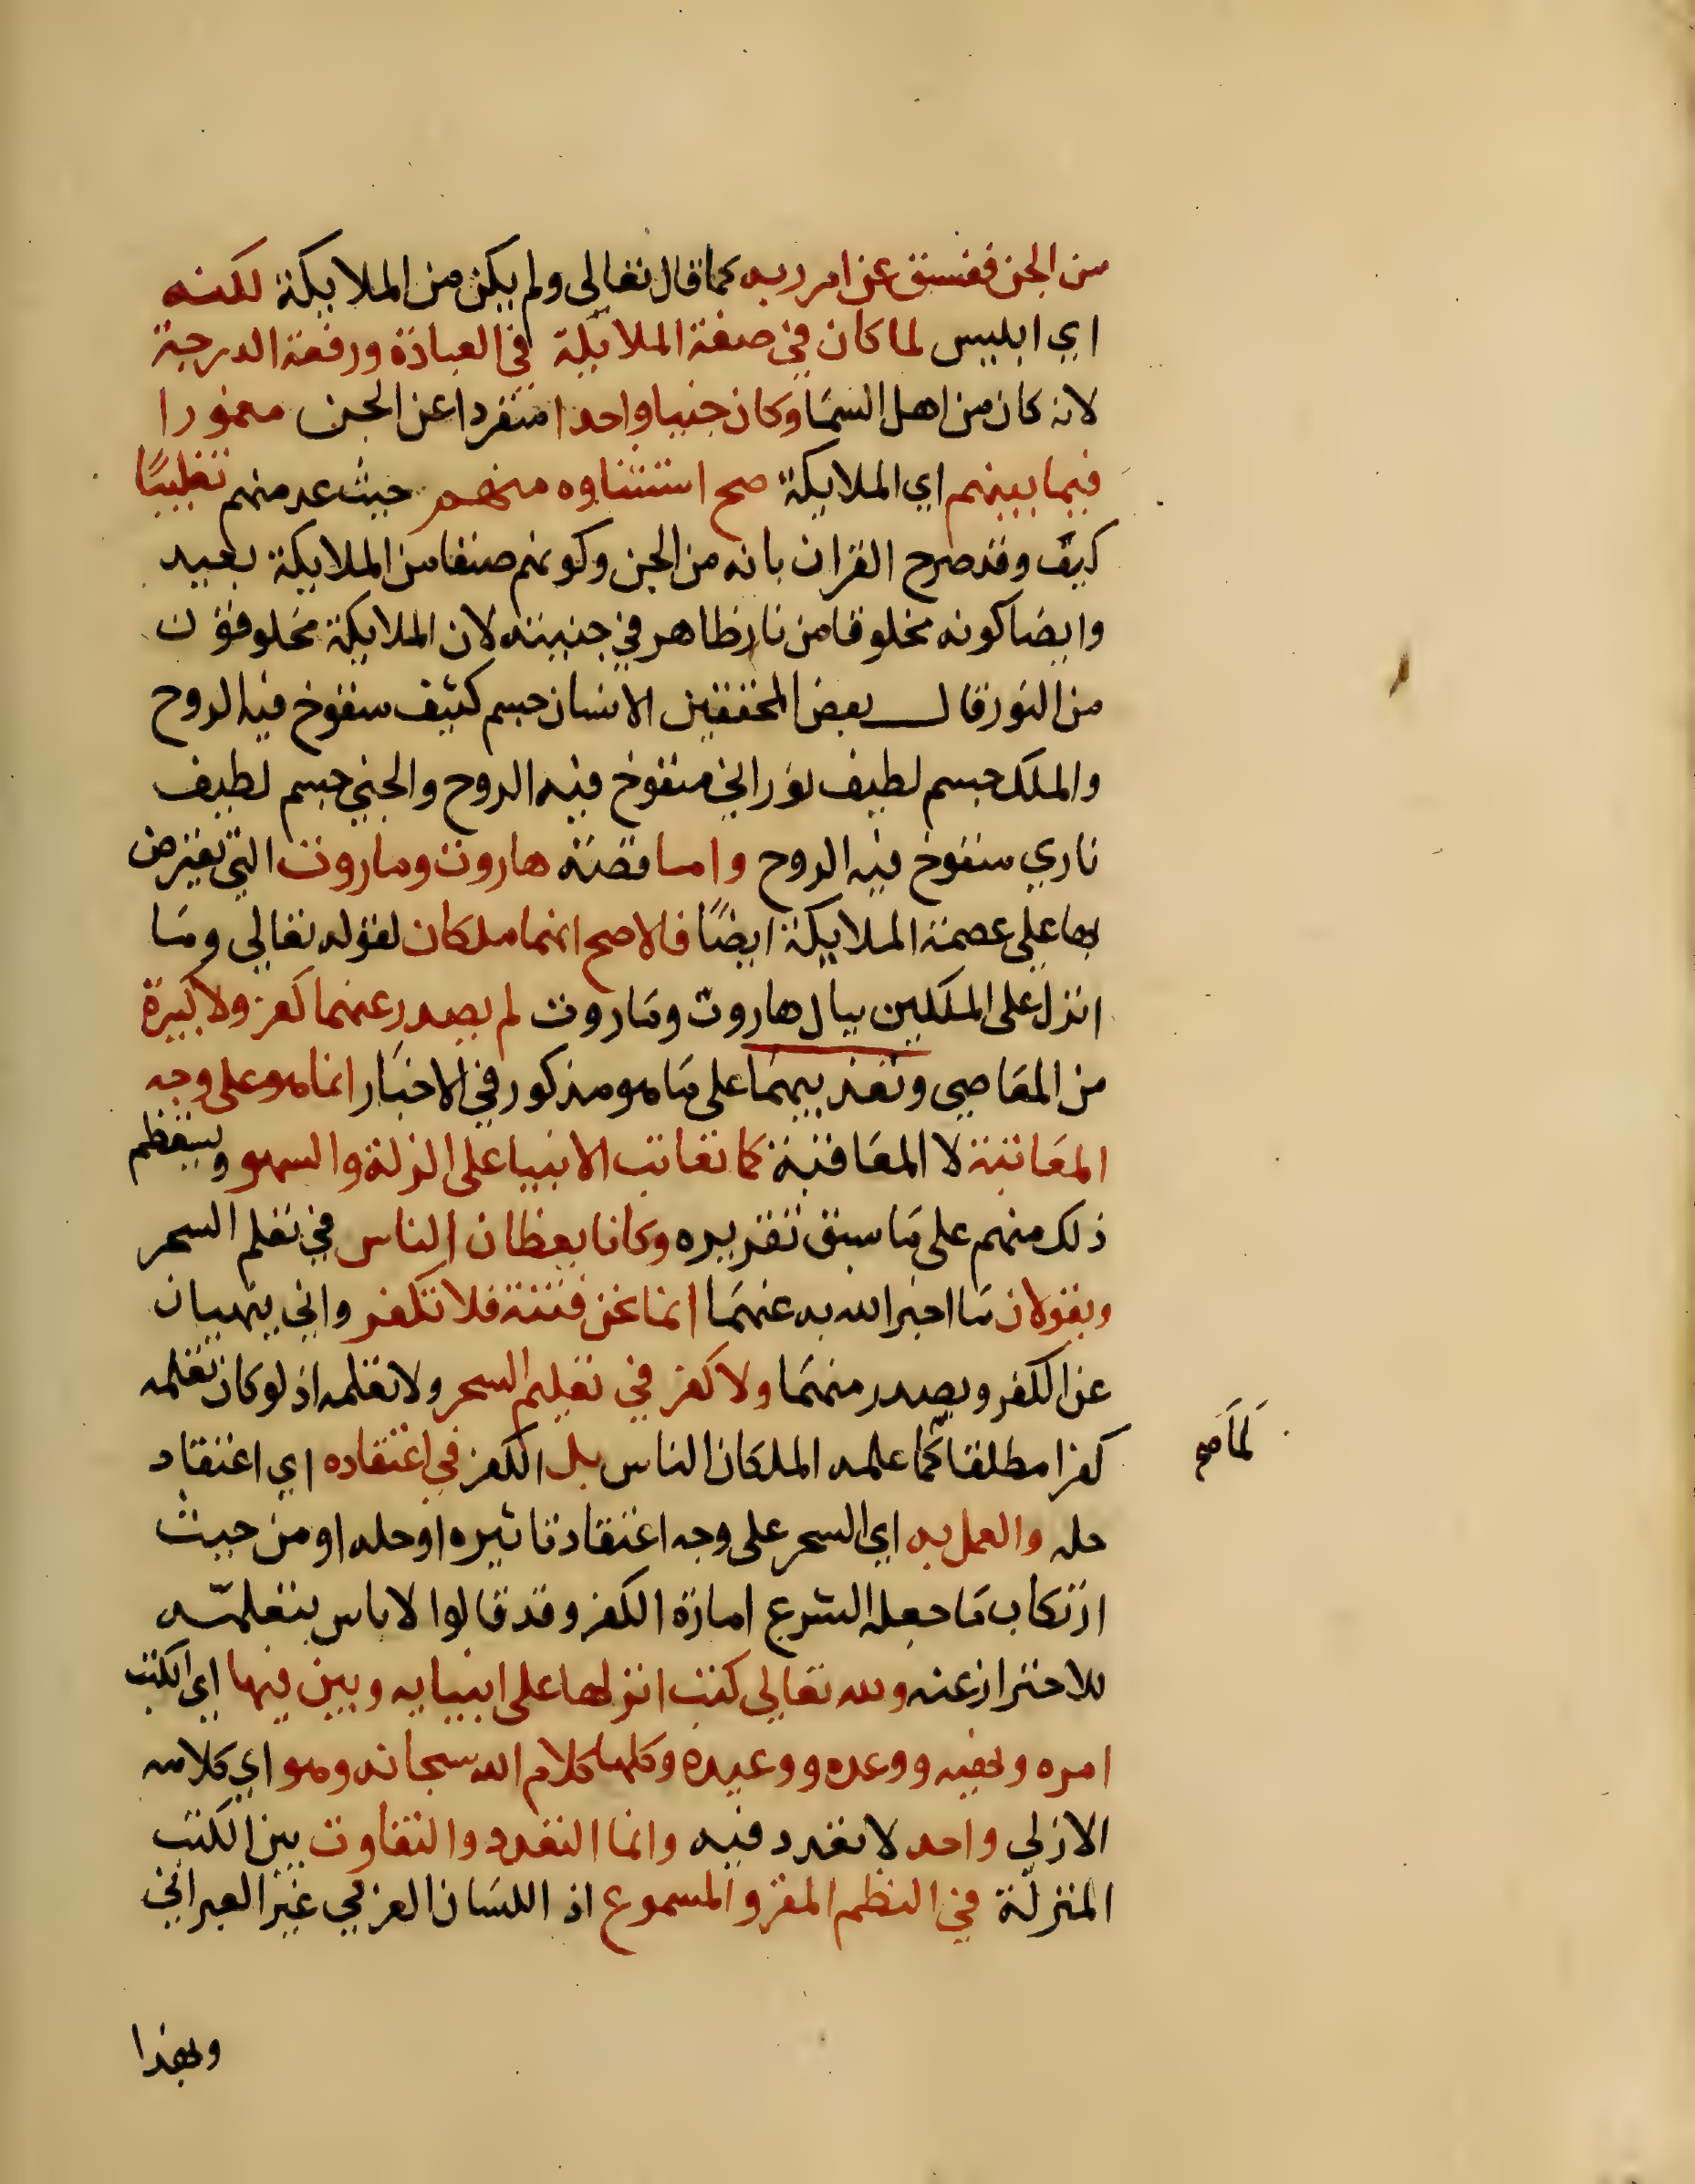 من الجن ففسق عن امر ربه كما قال تعالى ولم يكن من الملايكة لكنه
اي ابليس لما كان في صفة الملايكة في العبادة ورفعة الدرجة
لانه كان من اهل السما وكان جنيا واحدا منفردا عن الجن مغمورا
فيما بينهم اي الملايكة صح استثناوه منهم حيث عد منهم تغليبًا
كيف وقد صرح القران بانه من الجن وكونهم صنفا من الملايكة بعيد
وايضا كونه مخلوقا من نار ظاهر في جنيته لان الملايكة مخلوقون
من النور قال بعض المحققين الانسان جسم كثيف منفوخ فيه الروح
والملك جسم لطيف نوراني منفوخ فيه الروح والجني جسم لطيف
ناري منفوخ فيه الروح واما قصة هاروت وماروت التي يعترض
بها على عصمة الملايكة ايضًا فالاصح انهما ملكان لقوله تعالى وما
انزل على الملكين ببابل هاروت وماروت لم يصدر عنهما كفر ولا كبيرة
من المعاصي وتعذيبهما على ما هو مذكور في الاخبار انما هو على وجه
المعاتبة لا المعاقبة كما تعاتب الانبيا على الزلة والسهو ويستعظم
ذلك منهم على ما سبق تقريره وكانا يعظان الناس في تعلم السحر
ويقولان ما اخبر الله به عنهما انما نحن فتنة فلا تكفر واني ينهيان
عن الكفر ويصدر منهما ولا كفر في تعليم السحر ولا تعلمه اذ لو كان تعلمه
كفرا مطلقا كما علمه الملكان الناس بل الكفر في اعتقاده اي اعتقاد
لما صح
حله والعمل به اي السحر على وجه اعتقاد تاثيره او حله او من حيث
ارتكاب ما جعله الشرع امارة الكفر وقد قالوا لا باس بتعلمه
للاحتراز عنه ولله تعالى كتب انزلها على انبيايه وبين فيها اي الكتب
امره ونهيه ووعده ووعيده وكلها كلام الله سبحانه وهو اي كلامه
الازلي واحد لا تعدد فيه وانما التعدد والتفاوت بين الكتب
المنزلة في النظم المقرو المسموع اذ اللسان العربي غير العبراني
وبهذا